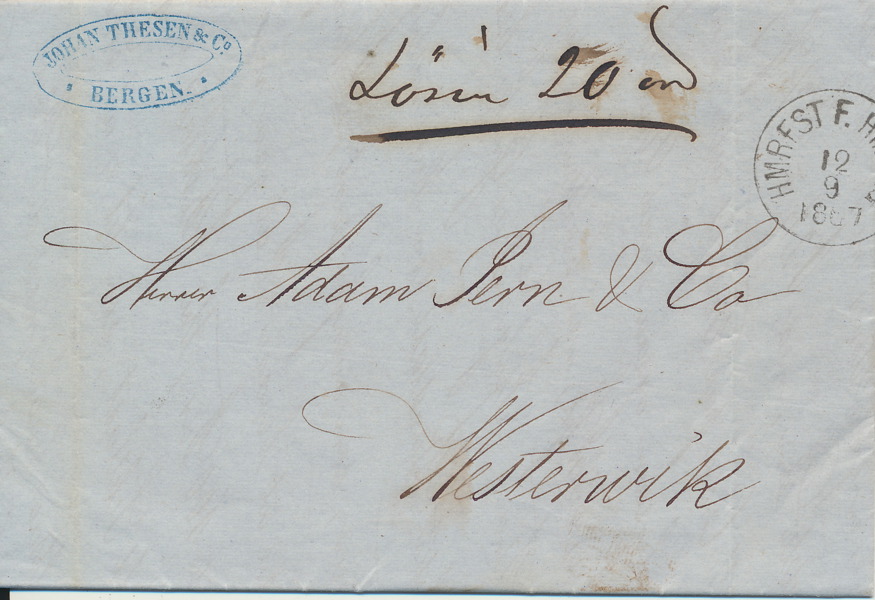 JOHAN THESEN & Cº
BERGEN.
Lösen 20
HMR.EST F.
12
9
1867
Herrer Adam Jern & Co
Westerwik